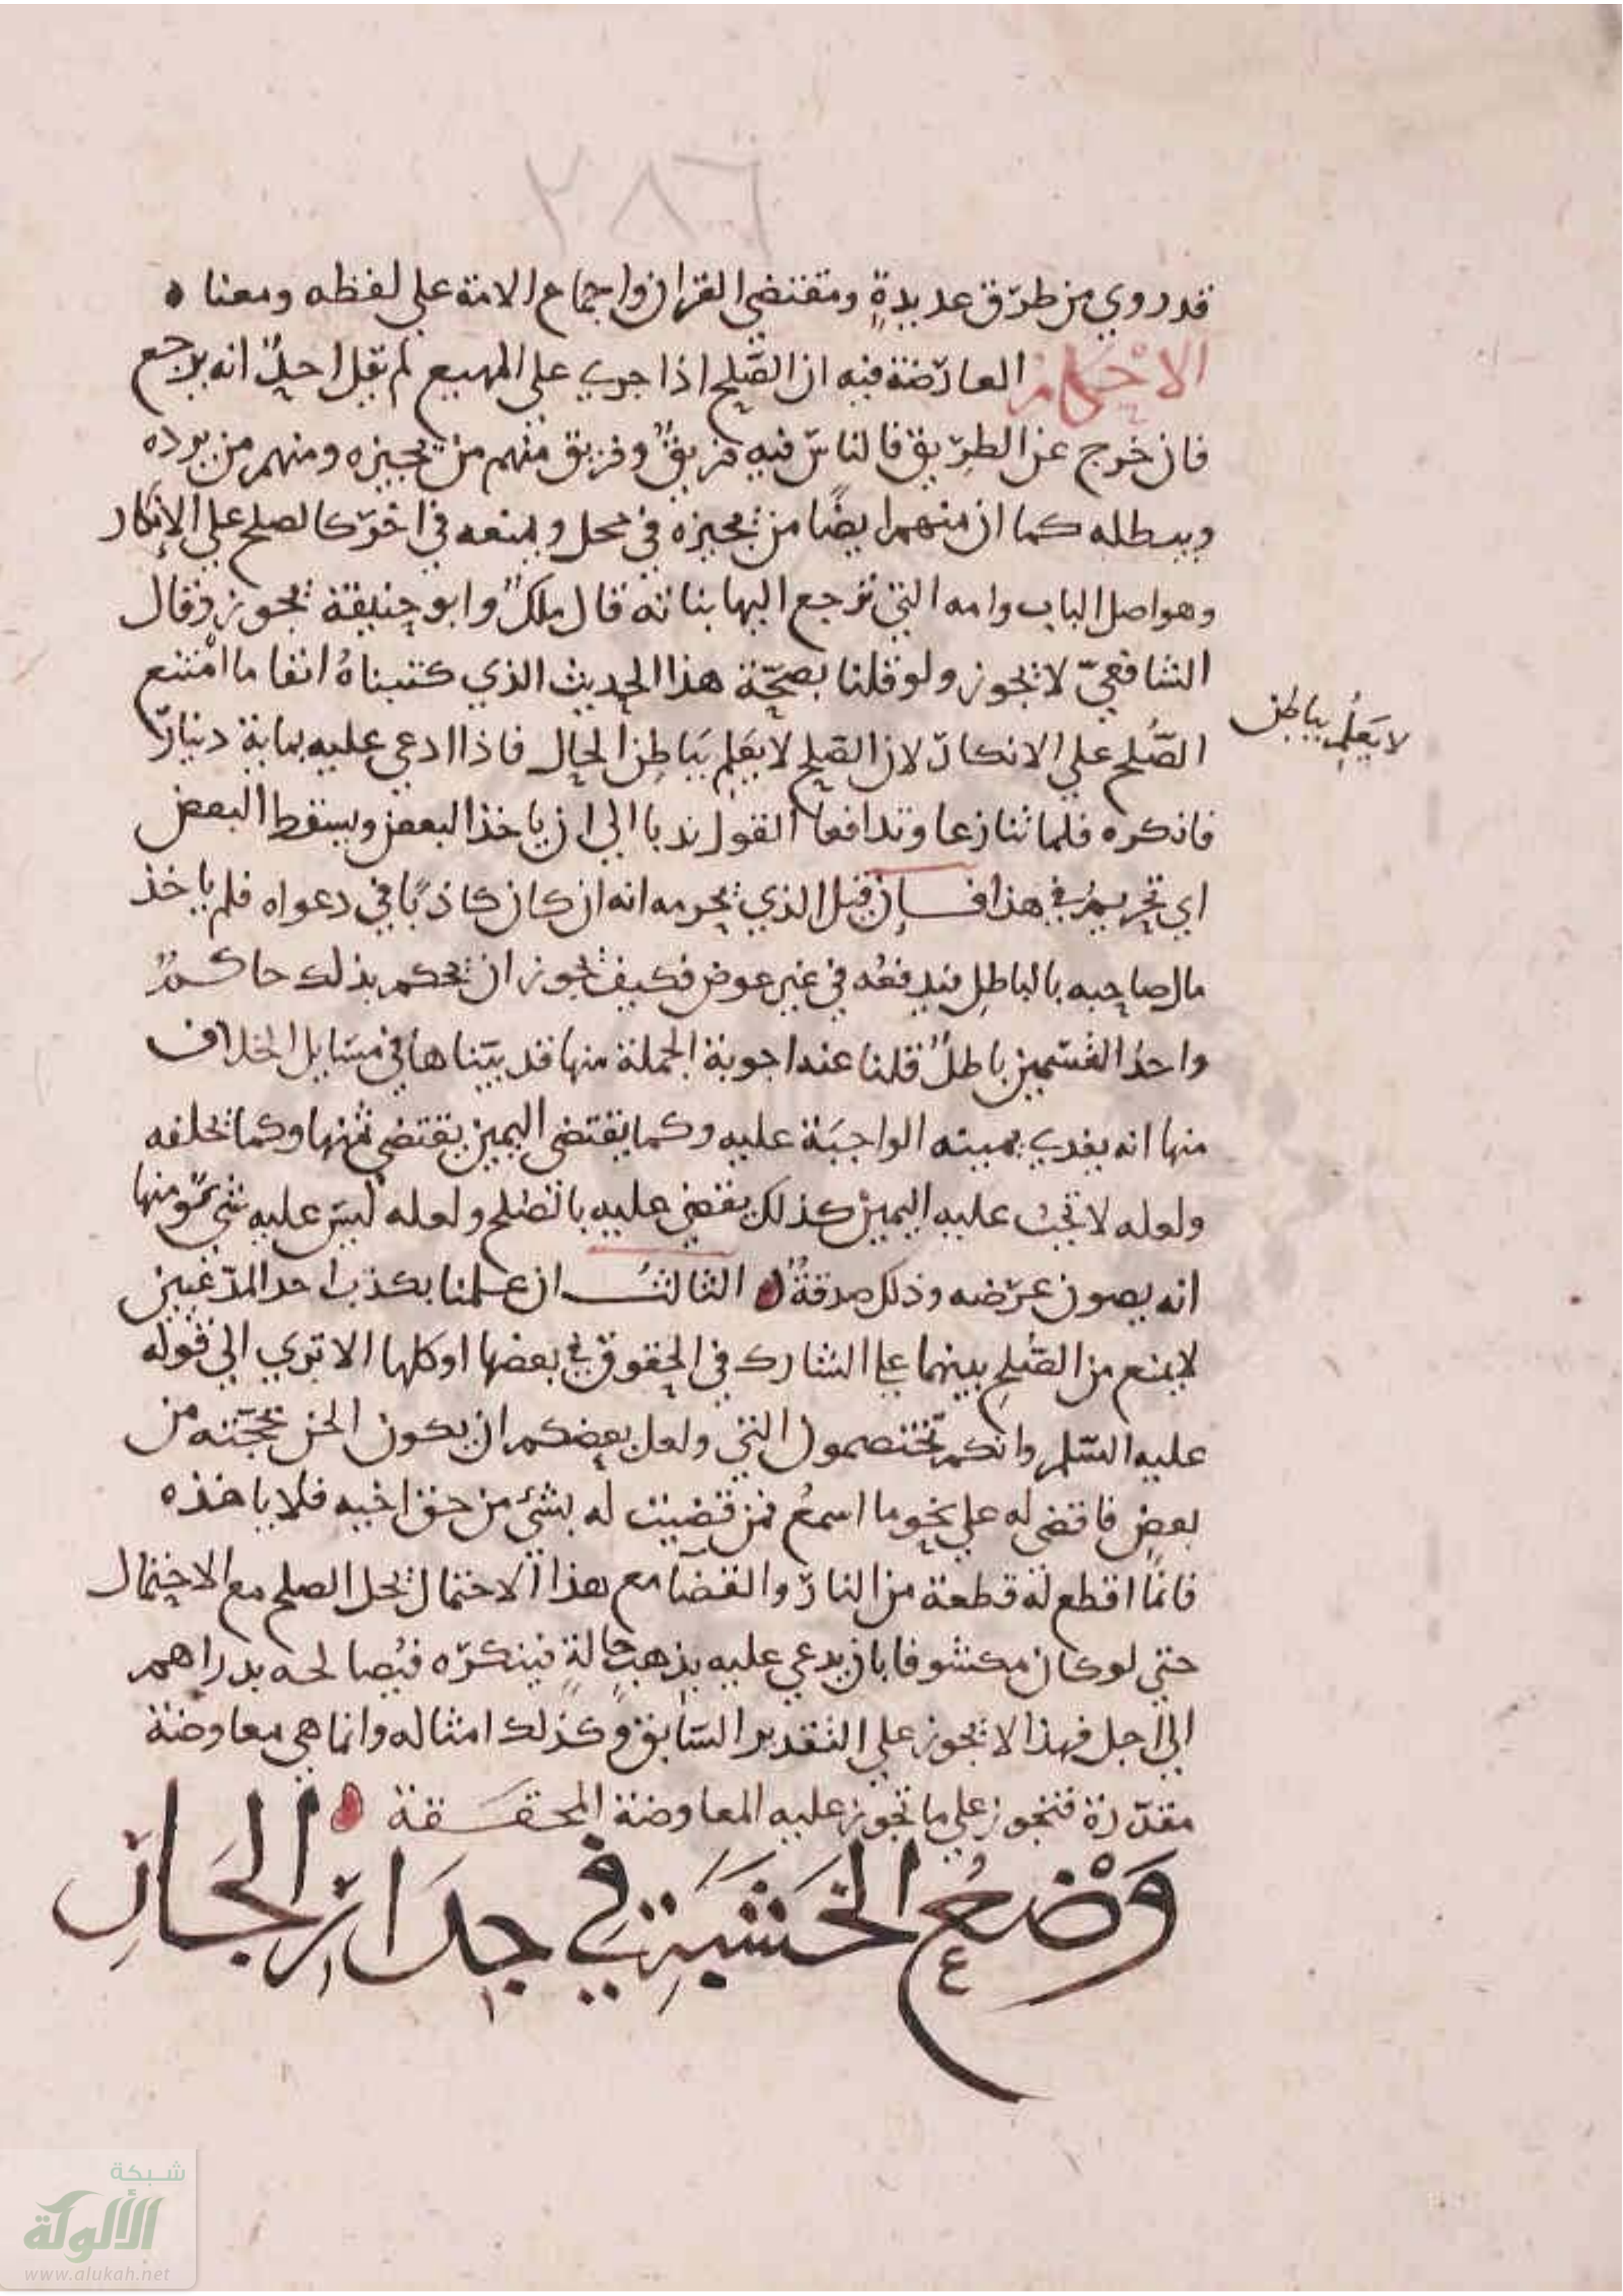 ٢٨٦
قد روي من طرق عديدة ومقتضي القران واجماع الامة علي لفظه ومعنا
الاحكام العارضة فيه ان الصلح اذا جري علي المهيع لم يقل احد انه يرجع
فان خرج عن الطريق فالناس فيه فريق وفريق منهم من يجيزه ومنهم من يرده
ويبطله كما ان منهم ايضا من يجيزه في محل ويمنعه في اخر كالصلح علي الانكار
وهو اصل الباب وامه التي ترجع اليها بناته قال ملك وابو حنيفة يجوز وقال
الشافعي لا يجوز ولو قلنا بصحة هذا الحديث الذي كتبناه انفا ما امتنع
الصلح علي الانكار لان الصلح لا يعلم بباطن الحال فاذا ادعي عليه بماية دينار
لا يعلم بباطن
فانكره فلما تنازعا وتدافعا القول ندبا الي ان ياخذ البعض ويسقط البعض
اي تحريم في هذا فان قيل الذي يحرمه انه ان كان كاذبا في دعواه فلم ياخذ
مال صاحبه بالباطل فيدفعه في غير عوض فكيف يجوز ان يحكم بذلك حاكم
واحد القسمين باطل قلنا عنه اجوبة الجملة منها قد بيناها في مسايل الخلاف
منها انه يفدي يمينه الواجبة عليه وكما يقتضي اليمين يقتضي ثمنها وكما يحلفه
ولعله لا تجب عليه اليمين كذلك يقضي عليه بالصلح ولعله ليس عليه شي ومنها
انه يصون عرضه وذلك صدقة الثالث ان علمنا بكذب احد المدعيين
لا يمنع من الصلح بينهما علي التشارك في الحقوق في بعضها او كلها الا تري الي قوله
عليه السلم وانكم تختصمون الي ولعل بعضكم ان يكون الحن بحجته من
بعض فاقضي له علي نحو ما اسمع فمن قضيت له بشئ من حق اخيه فلا ياخذه
فانما اقطع له قطعة من النار والقضا مع هذا الاحتمال يحل الصلح مع الاحتمال
حتي لو كان مكشوفا بان يدعي عليه بذهب حالة فينكره فيصالحه بدراهم
الي اجل فهذا لا يجوز علي التقدير السابق وكذلك امثاله وانما هي معاوضة
مقدرة فتجوز علي ما تجوز عليه المعاوضة المحققة
وضع الخشبة في جدار الجار
شبكة
الألوكة
www.alukah.net